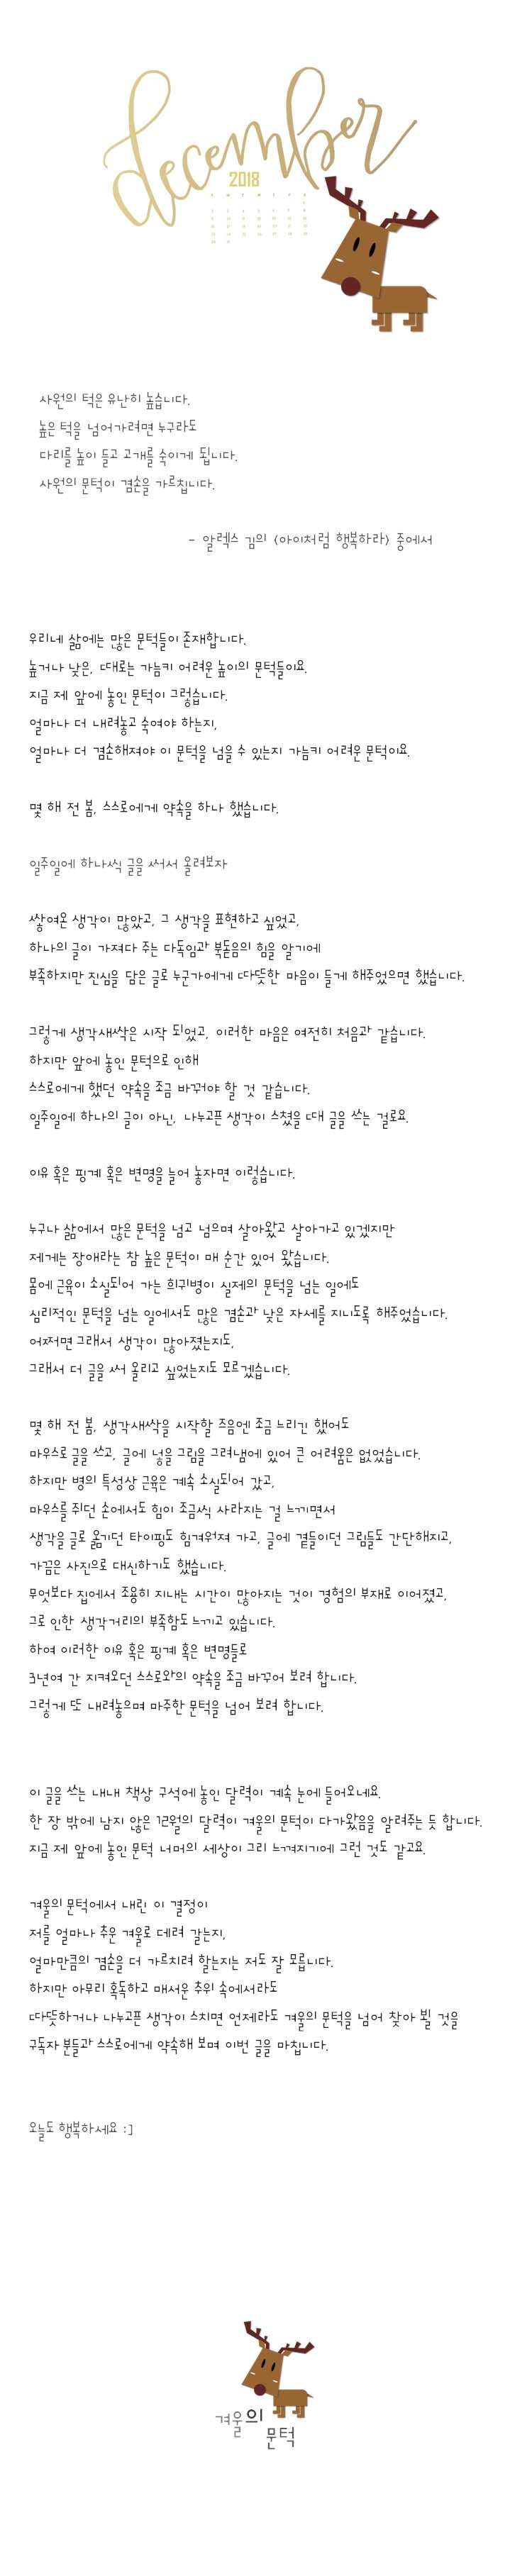 december
2018
사원의 턱은 유난히 높습니다.
높은 턱을 넘어가려면 누구라도
다리를 높이 들고 고개를 숙이게 됩니다.
사원의 문턱이 겸손을 가르칩니다.
- 알렉스 김의 <아이처럼 행복하라> 중에서
우리네 삶에는 많은 문턱들이 존재합니다.
높거나 낮은, 때로는 가늠키 어려운 높이의 문턱들이요.
지금 제 앞에 놓인 문턱이 그렇습니다.
얼마나 더 내려놓고 숙여야 하는지,
얼마나 더 겸손해져야 이 문턱을 넘을 수 있는지 가늠키 어려운 문턱이요.
몇 해 전 봄, 스스로에게 약속을 하나 했습니다.
일주일에 하나씩 글을 써서 올려보자
쌓여온 생각이 많았고, 그 생각을 표현하고 싶었고,
하나의 글이 가져다 주는 다독임과 북돋음의 힘을 알기에
부족하지만 진심을 담은 글로 누군가에게 따뜻한 마음이 들게 해주었으면 했습니다.
그렇게 생각새싹은 시작 되었고, 이러한 마음은 여전히 처음과 같습니다.
하지만 앞에 놓인 문턱으로 인해
스스로에게 했던 약속을 조금 바꿔야 할 것 같습니다.
일주일에 하나의 글이 아닌, 나누고픈 생각이 스쳤을 때 글을 쓰는 걸로요.
이유 혹은 핑계 혹은 변명을 늘어 놓자면 이렇습니다.
누구나 삶에서 많은 문턱을 넘고 넘으며 살아왔고 살아가고 있겠지만
제게는 장애라는 참 높은 문턱이 매 순간 있어 왔습니다.
몸에 근육이 소실되어 가는 희귀병이 실제의 문턱을 넘는 일에도
심리적인 문턱을 넘는 일에서도 많은 겸손과 낮은 자세를 지니도록 해주었습니다.
어쩌면 그래서 생각이 많아졌는지도,
그래서 더 글을 써 올리고 싶었는지도 모르겠습니다.
몇 해 전 봄, 생각새싹을 시작할 즈음엔 조금 느리긴 했어도
마우스로 글을 쓰고, 글에 넣을 그림을 그려냄에 있어 큰 어려움은 없었습니다.
하지만 병의 특성상 근육은 계속 소실되어 갔고,
마우스를 쥐던 손에서도 힘이 조금씩 사라지는 걸 느끼면서
생각을 글로 옮기던 타이핑도 힘겨워져 가고, 글에 곁들이던 그림들도 간단해지고,
가끔은 사진으로 대신하기도 했습니다.
무엇보다 집에서 조용히 지내는 시간이 많아지는 것이 경험의 부재로 이어졌고,
그로 인한 생각거리의 부족함도 느끼고 있습니다.
하여 이러한 이유 혹은 핑계 혹은 변명들로
3년여 간 지켜오던 스스로와의 약속을 조금 바꾸어 보려 합니다.
그렇게 또 내려놓으며 마주한 문턱을 넘어 보려 합니다.
이 글을 쓰는 내내 책상 구석에 놓인 달력이 계속 눈에 들어오네요.
한 장 밖에 남지 않은 12월의 달력이 겨울의 문턱이 다가왔음을 알려주는 듯 합니다.
지금 제 앞에 놓인 문턱 너머의 세상이 그리 느껴지기에 그런 것도 같고요.
겨울의 문턱에서 내린 이 결정이
저를 얼마나 추운 겨울로 데려 갈는지,
얼마만큼의 겸손을 더 가르치려 할는지는 저도 잘 모릅니다.
하지만 아무리 혹독하고 매서운 추위 속에서라도
따뜻하거나 나누고픈 생각이 스치면 언제라도 겨울의 문턱을 넘어 찾아 뵐 것을
구독자 분들과 스스로에게 약속해 보며 이번 글을 마칩니다.
오늘도 행복하세요 :]
겨울의
문턱